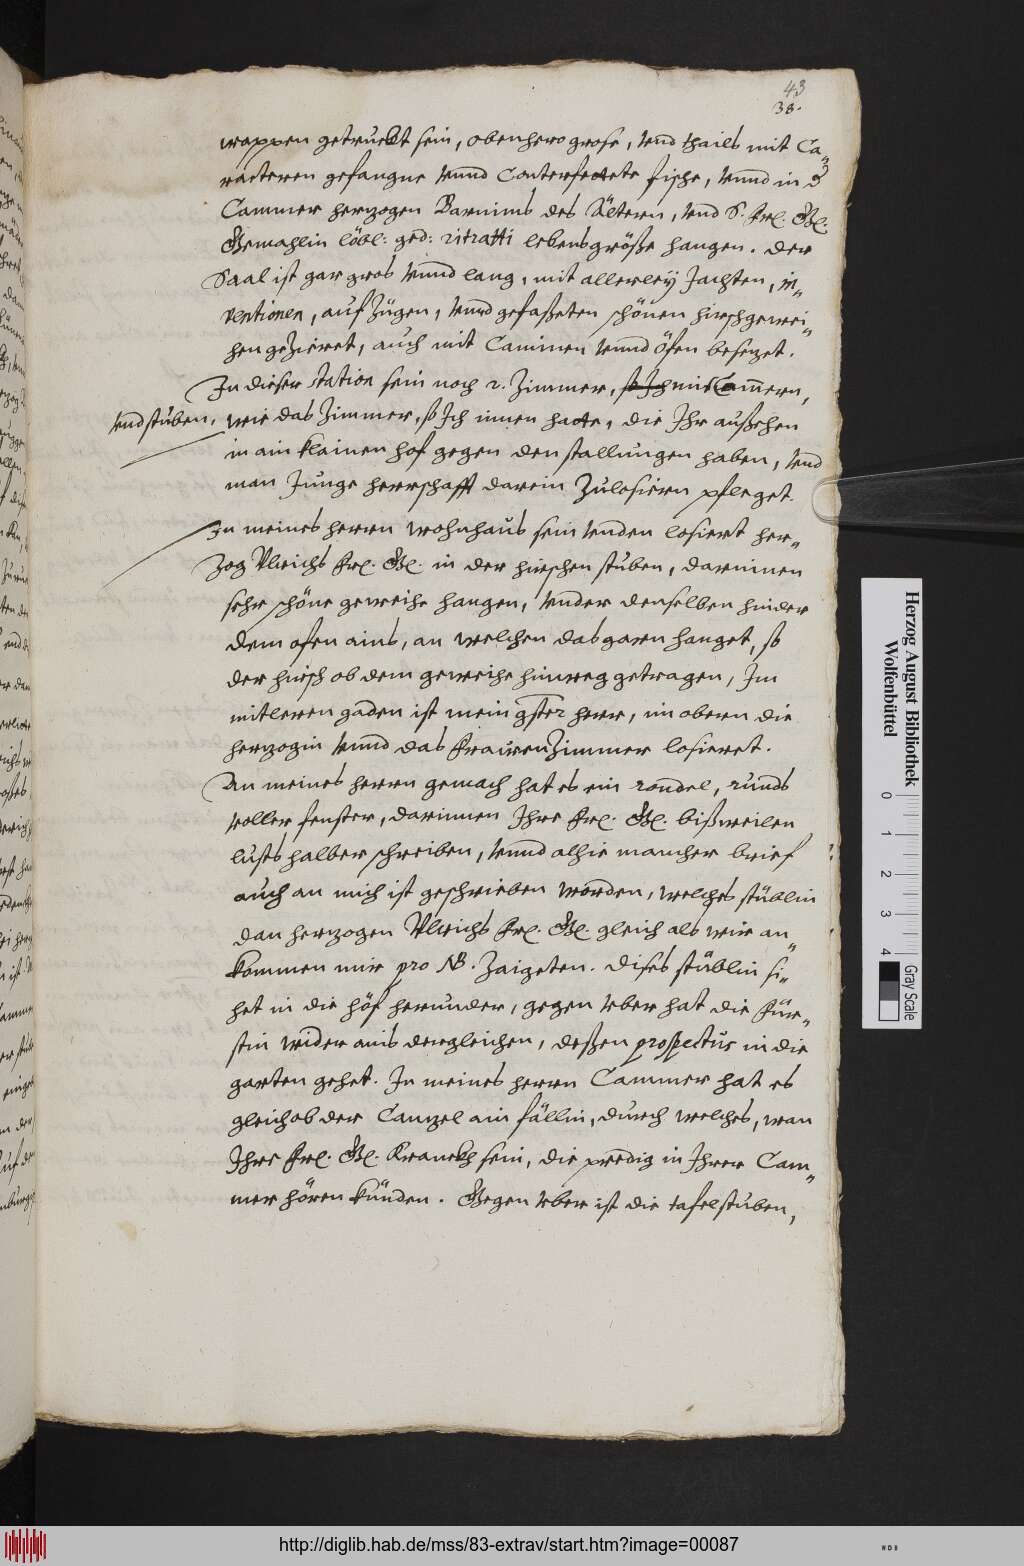 43
38.
wappen getruckt sein, obenhero grose, vnd thails mit Ca„
racteren gefangne vnnd Conterfetete fische, vnnd in d
Cammer herzogen Barnims des Ältern, vnd S. Frl. Gl.
Gemahlin löbl: ged: ritratti lebensgröße hangen. der
Saal ist gar gros vnnd lang, mit allerley Jachten, in„
ventionen, aufzügen, vnnd gefaßeten schönen hirschgewei„
hen gezieret, auch mit Caminen vnnd öfen besezet.
In dieser station sein noch 2. Zimmer, mit Camern,
vnd stuben, wie das Zimmer, so Ich innen hatte, die Ihr außsehen
in ain klainen hof gegen den stallungen haben, vnd
man Junge herrschafft darein zulosiern pfleget.
In meines herrn wohnhaus sein vnden losiert her„
zog Vlrichs Frl. Gl. in der hirschenstuben, darinnen
sehr schöne geweihe hangen, vnder denselben hinder
dem ofen ains, an welchen das garn hanget, so
der hirsch ob dem geweihe hinweg getragen, Im
mitleren gaden ist mein gster herr, im obern die
herzogin vnnd das Frawenzimmer losieret.
An meines herrn gemach hat es ein rondel, runds
voller fenster, darinnen Ihre Frl. Gl. bißweilen
lusts halber schreiben, vnnd alhie mancher brief
auch an mich ist geschrieben worden, welches stüblin
dan herzogen Vlrichs Frl. Gl. gleich als wir an„
kommen mir pro NB. zaigeten. dises stüblin si„
het in die höf herunder, gegen vber hat die Für„
stin wider ains dergleichen, deßen prospectus in die
garten gehet. In meines herrn Cammer hat es
gleich ob der Canzel ain fällin, durch welches, wan
Ihre Frl. Gl. Kranckh sein, die predig in Ihrer Cam„
mer hören künden. Gegen vber ist die tafelstuben,
Herzog August Bibliothek
Wolfenbüttel
0 1 2 3 4
Gray Scale
http://diglib.hab.de/mss/83-extrav/start.htm?image=00087